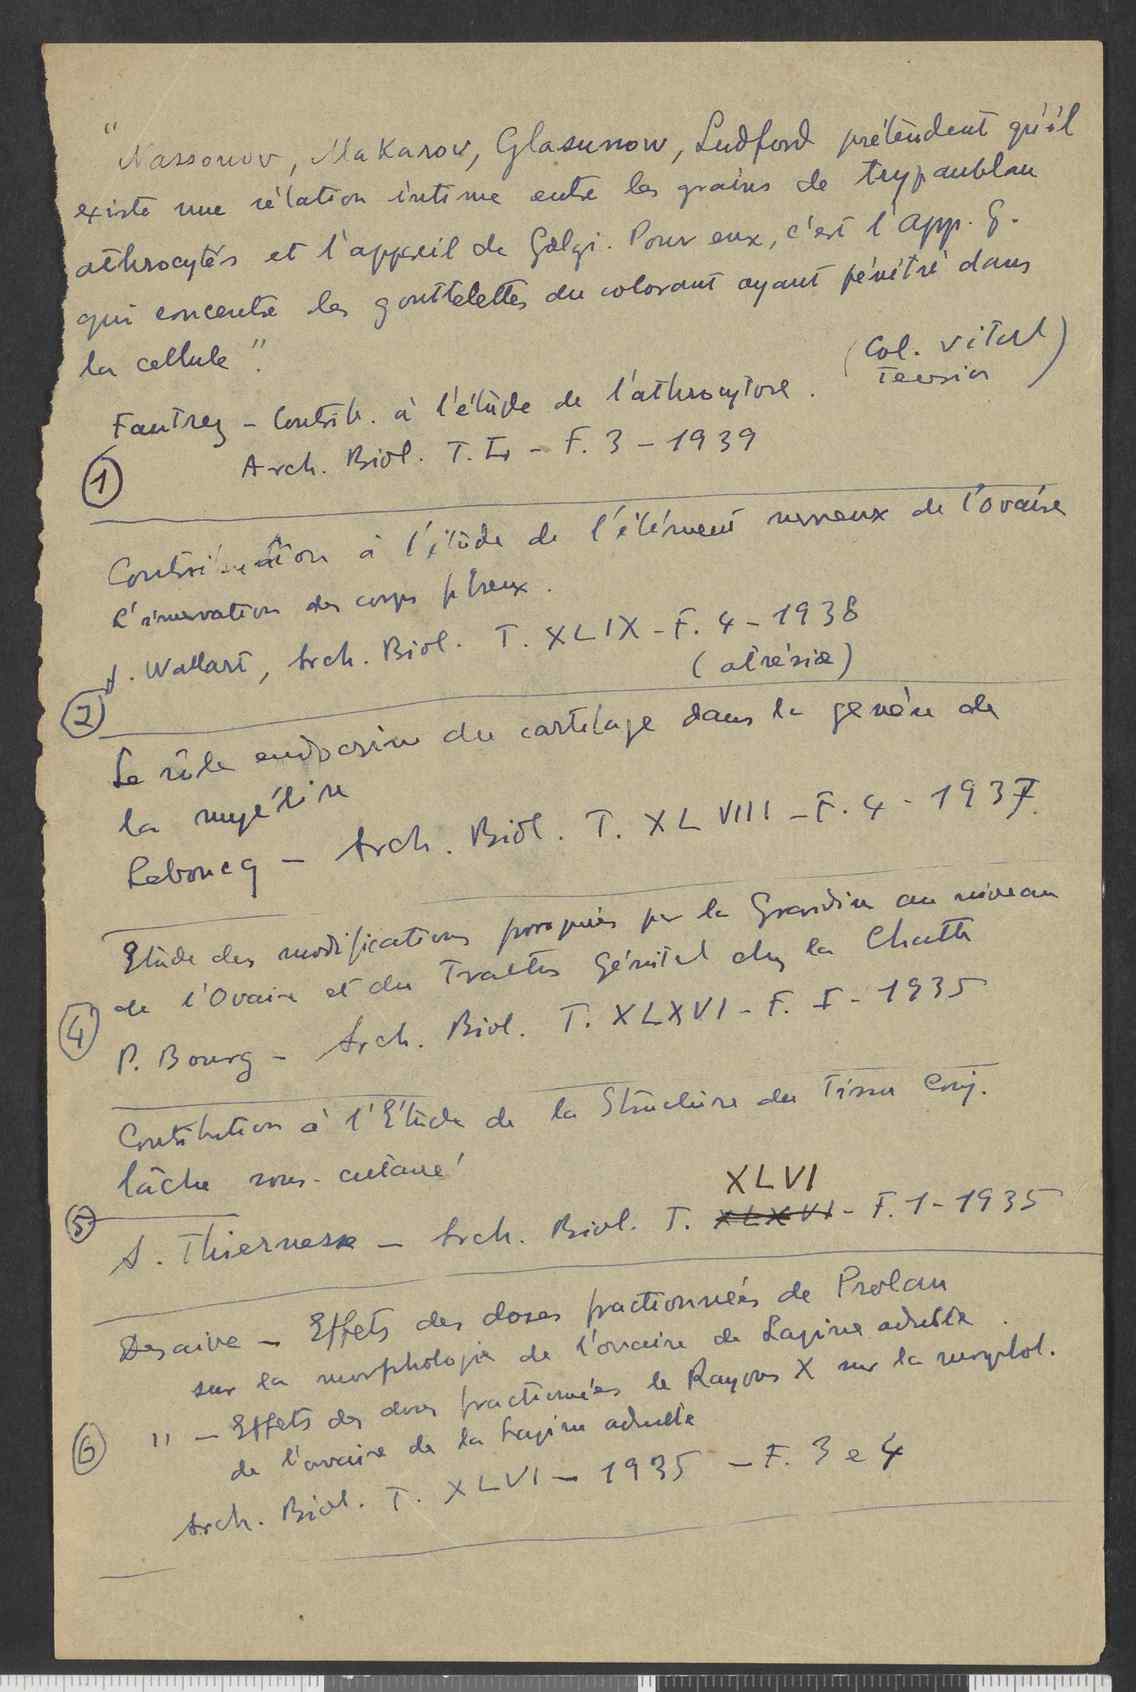 "Nassonov, Makarov, Glasunow, Ludford prétendent qu'il
existe une rélation intime entre les grains de trypanblau
athrocytés et l'appareil de Golgi. Pour eux, c'est l'app. G.
qui concentre les gouttelettes du colorant ayant pénétré dans
la cellule".
(Col. vital)
Fautrez - Contrib. à l'étude de l'athrocytose.
① Arch. Biol. T. L - F. 3 - 1939
Contribution à l'étude de l'élément nerveux de l'ovaire
L'inervation des corps
J. Wallart, Arch. Biol. T. XLIX - F. 4 - 1938
② (atrésie)
Le rôle endocrine du cartilage dans la genèse de
la myéline
Leboucq - Arch. Biol. T. XLVIII - F. 4 - 1937.
Etude des modifications par la Gravidité au niveau
de l'Ovaire et du Tractus Génital chez la Chatte
④ P. Bourg - Arch. Biol. T. XLXVI - F. I - 1935
Contribution à l'Etude de la Structure du Tissu Conj.
lâche sous-cutané
XLVI
⑤ A. Thiernesse - Arch. Biol. T. XLXVI - F. 1 - 1935
Desaive - Effets des doses fractionnées de Prolan
sur la morphologie de l'ovaire de Lapine adulte.
" - Effets des doses fractionnées de Rayons X sur la morphol.
⑥ de l'ovaire de la Lapine adulte
Arch. Biol. T. XLVI - 1935 - F. 3 e 4